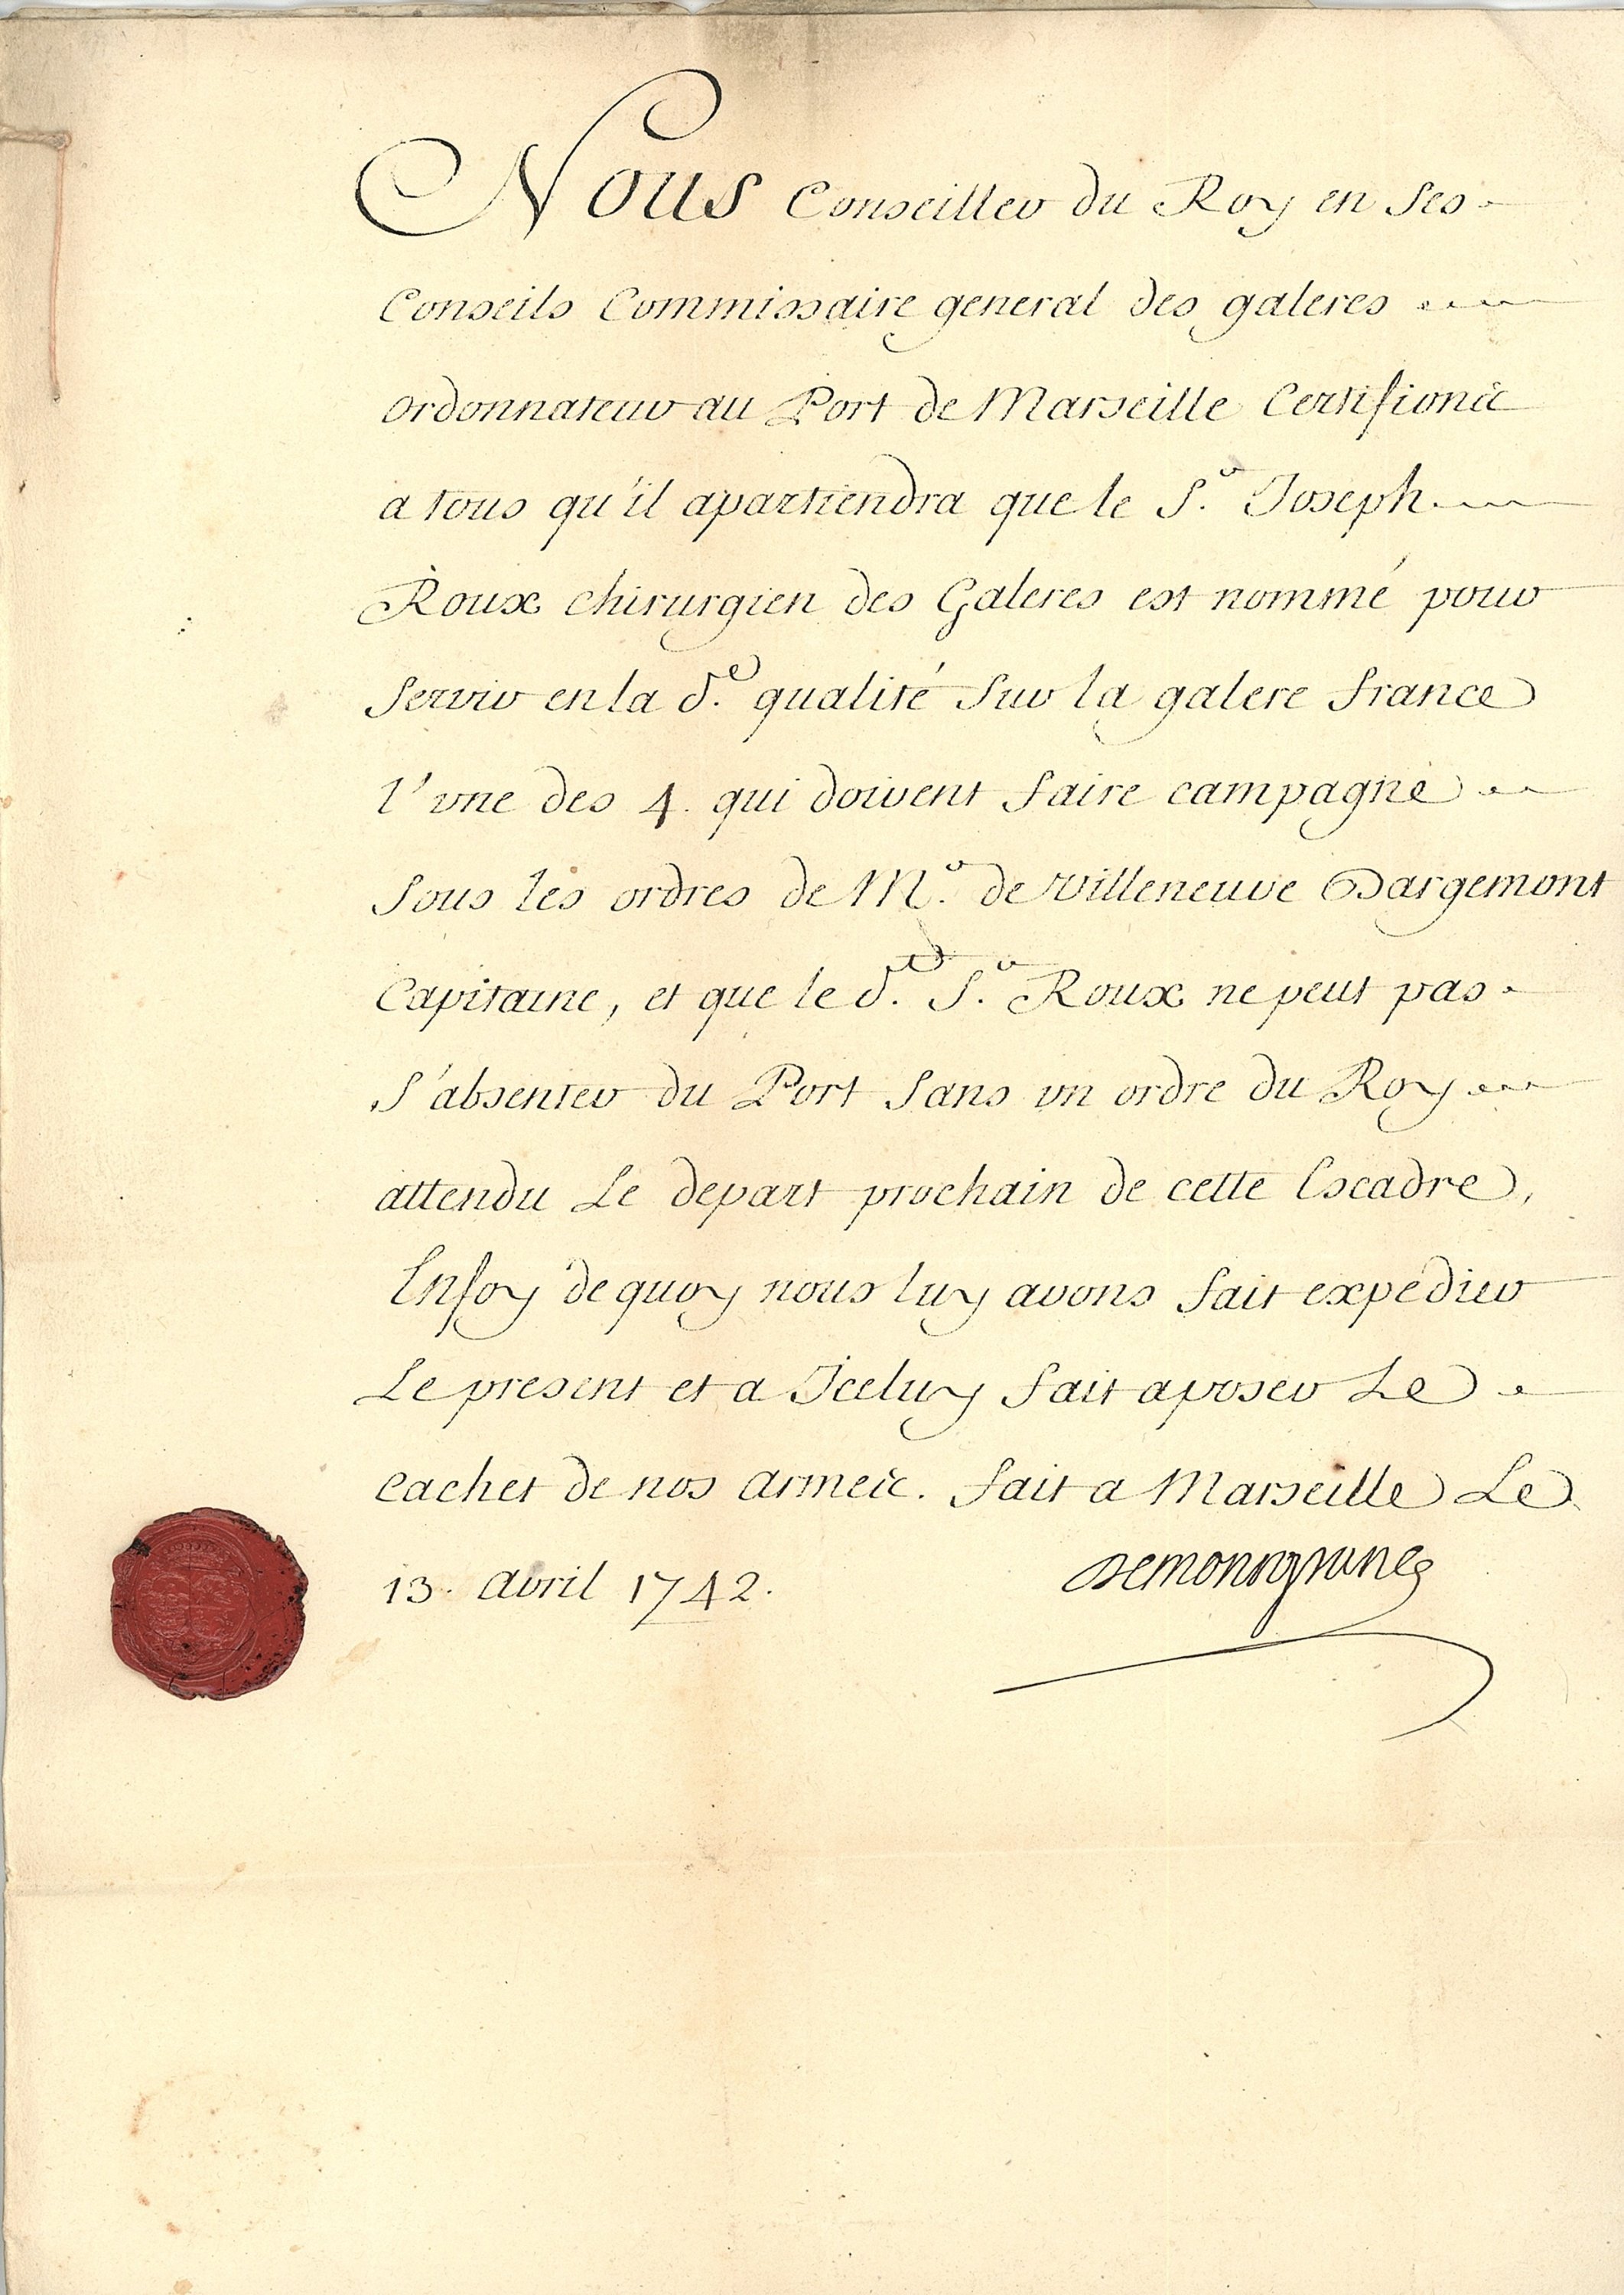 Nous Conseiller du Roy en ses
Conseils Commissaire general des galeres
ordonnateur au Port de Marseille Certifions
a tous qu'il apartiendra que le S.r Joseph
Roux chirurgien des Galeres est nommé pour
servir en la d.e qualité sur la galere france
l'vne des 4. qui doivent faire campagne
sous les ordres de M.r de villeneuve Dargemont
Capitaine, et que le d.t S.r Roux ne peut pas
s'absenter du Port sans vn ordre du Roy
attendu Le depart prochain de cette Escadre,
Enfoy de quoy nous luy avons fait expedier
Le present et a Iceluy fait aposer Le
cachet de nos armes. fait a Marseille Le
13. avril 1742.